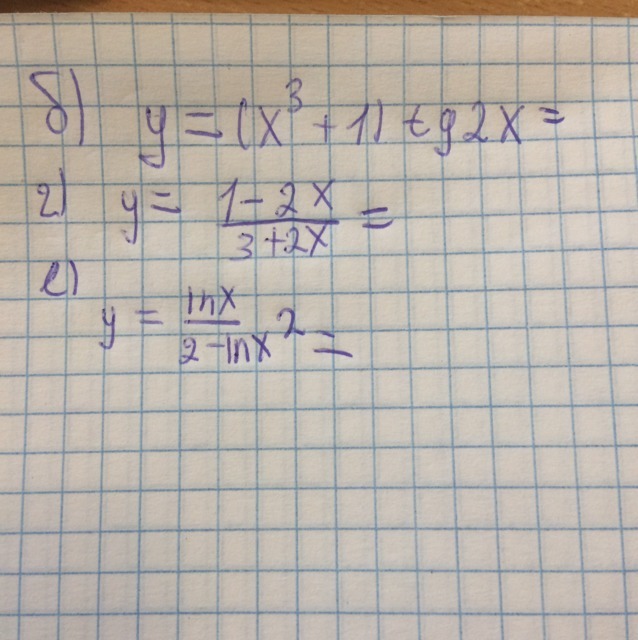 б) y = (x³ + 1) tg2x =
г) y = (1 - 2x)/(3 + 2x) =
е) y = lnx/(2 - lnx²) =